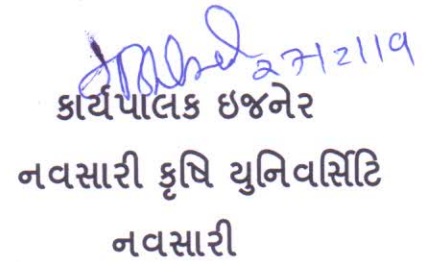 27/2/19
કાર્યપાલક ઇજનેર
નવસારી કૃષિ યુનિવર્સિટિ
નવસારી